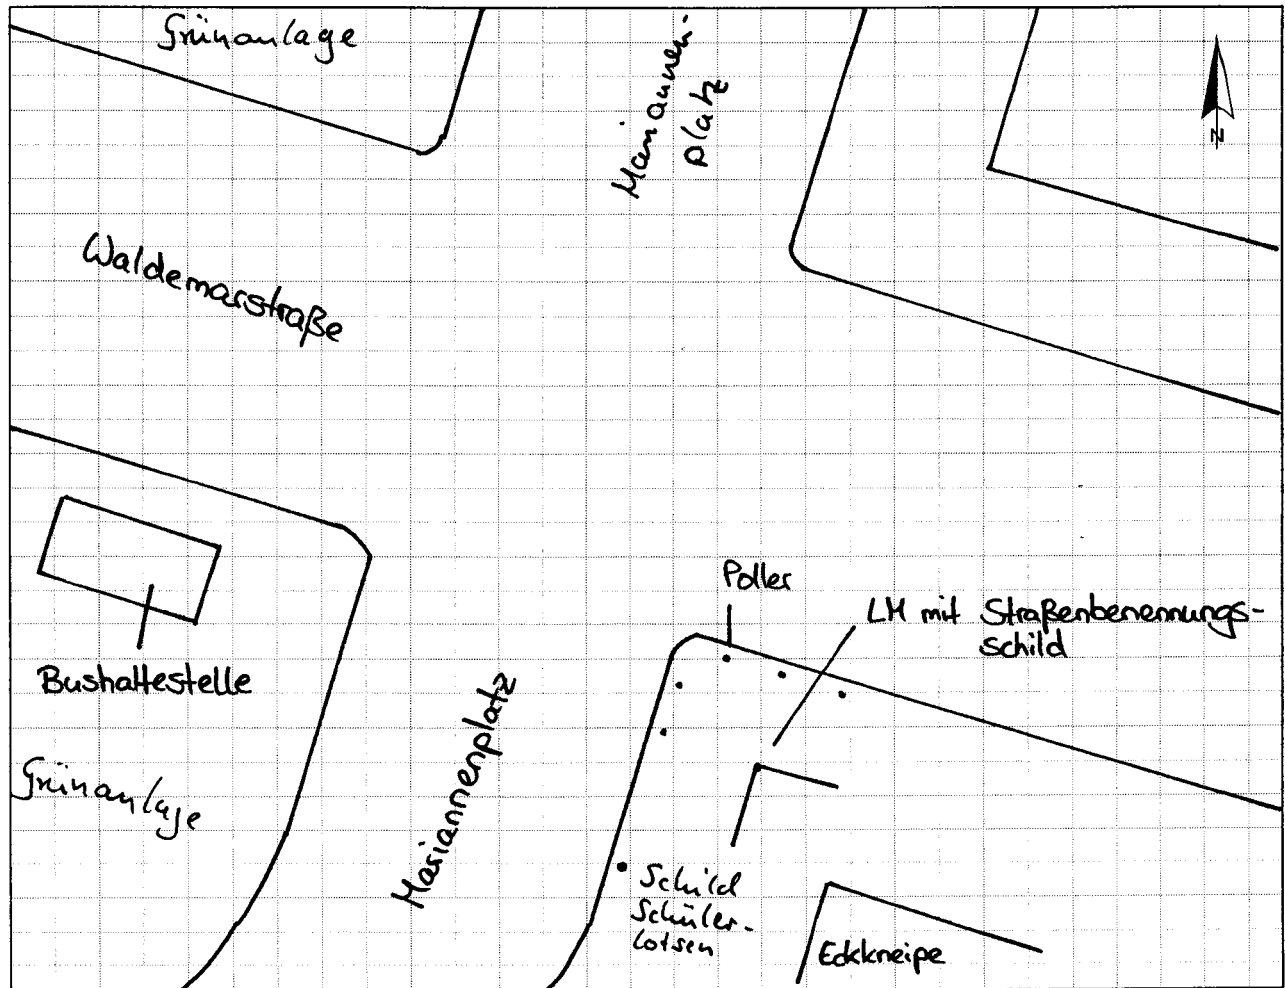 Grünanlage
Mariannen-
platz
N
Waldemarstraße
Poller
LM mit Straßenbenennungs-
schild
Bushaltestelle
Mariannenplatz
Grünanlage
Schild
Schüler-
lotsen
Eckkneipe